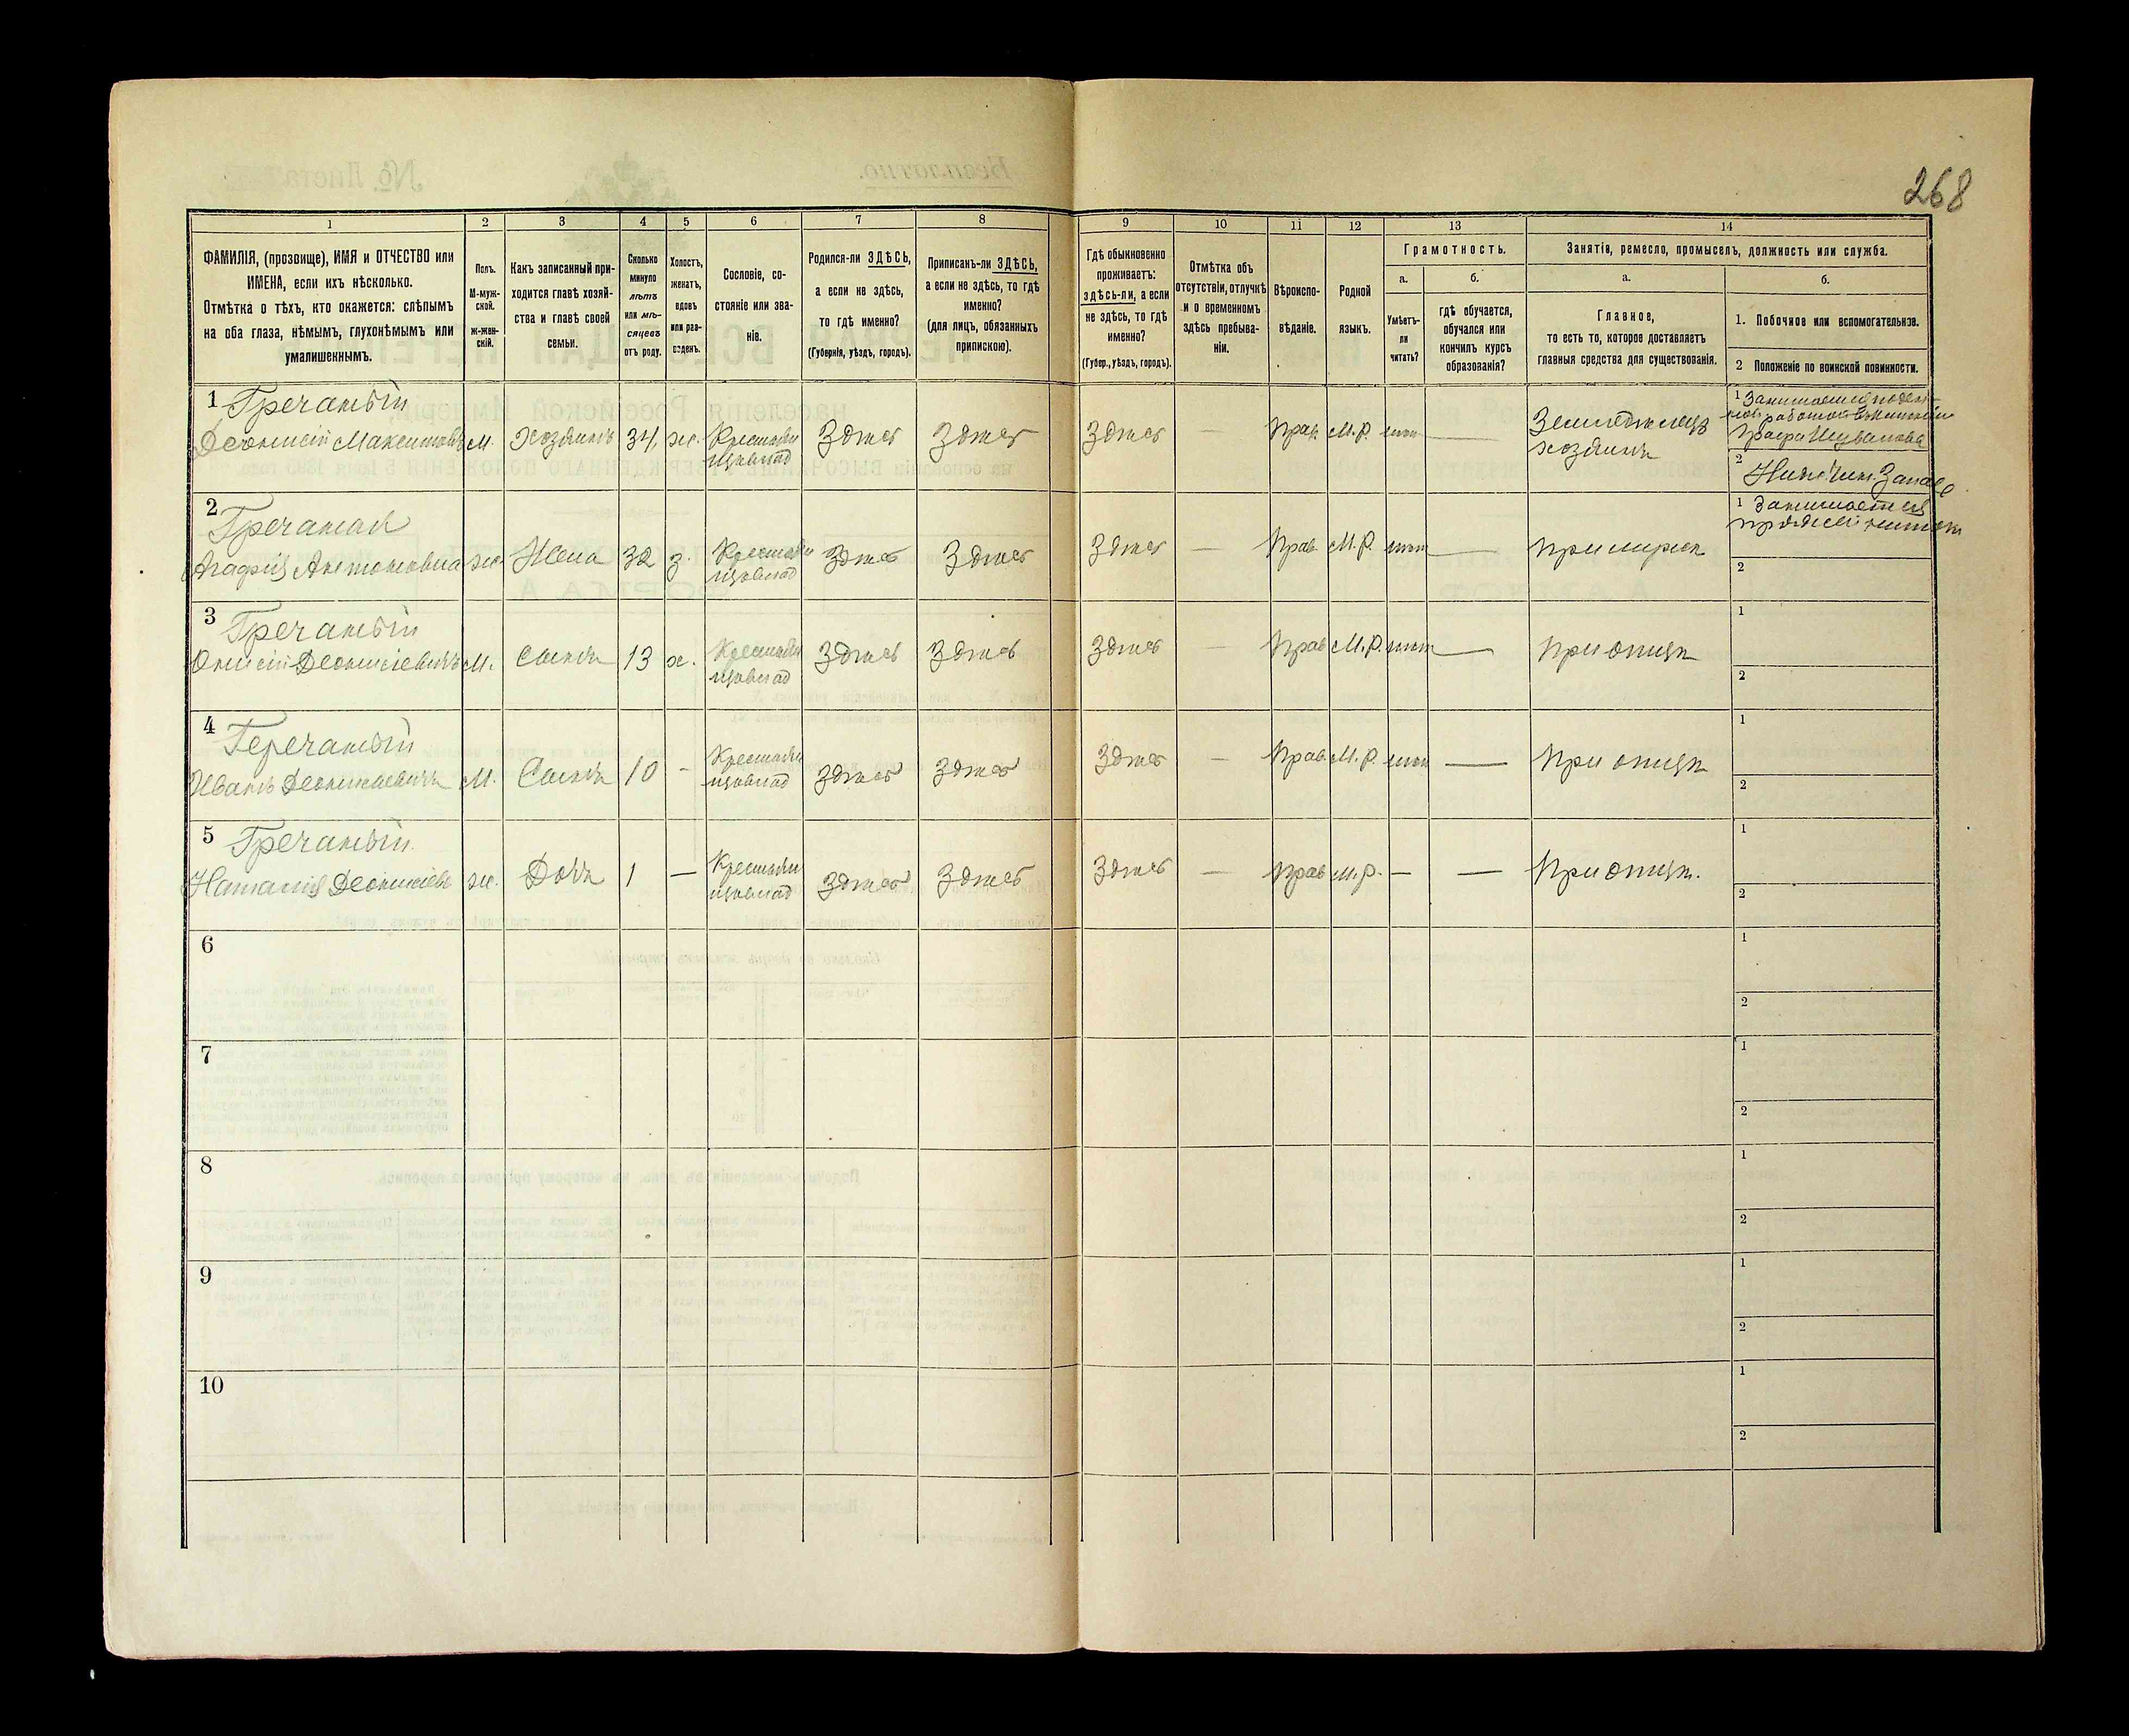 268
1 2 3 4 5 6 7 8 9 10 11 12 13 14
ФАМИЛІЯ, (прозвище), ИМЯ и ОТЧЕСТВО или
ИМЕНА, если ихъ нѣсколько.
Отмѣтка о тѣхъ, кто окажется: слѣпымъ
на оба глаза, нѣмымъ, глухонѣмымъ или
умалишеннымъ.
Полъ.
М-муж-
ской.
ж-жен-
скій.
Какъ записанный при-
ходится главѣ хозяй-
ства и главѣ своей
семьи.
Сколько
минуло
лѣтъ
или мѣ-
сяцевъ
отъ роду.
Холостъ,
женатъ,
вдовъ
или раз-
веденъ.
Сословіе, со-
стояніе или зва-
ніе.
Родился-ли ЗДѢСЬ,
а если не здѣсь,
то гдѣ именно?
(Губернія, уѣздъ, городъ).
Приписанъ-ли ЗДѢСЬ,
а если не здѣсь, то гдѣ
именно?
(для лицъ, обязанныхъ
припискою).
Гдѣ обыкновенно
проживаетъ:
здѣсь-ли, а если
не здѣсь, то гдѣ
именно?
(Губер., уѣздъ, городъ).
Отмѣтка объ
отсутствіи, отлучкѣ
и о временномъ
здѣсь пребыва-
ніи.
Вѣроиспо-
вѣданіе.
Родной
языкъ.
Грамотность.
а.
Умѣетъ-
ли
читать?
б.
гдѣ обучается,
обучался или
кончилъ курсъ
образованія?
Занятія, ремесло, промыселъ, должность или служба.
а.
Главное,
то есть то, которое доставляетъ
главныя средства для существованія.
б.
1. Побочное или вспомогательное.
2 Положеніе по воинской повинности.
1 Гречаный
Деонисій Максимовъ М. Хозяинъ 34 ж. Крестьян Здѣсь Здѣсь Здѣсь — Прав. М.Р. нѣт — Земледѣлецъ
хозяинъ
1 Занимается
графа Шувалова
2 Ниж. Чин. Запаса
2 Гречаная
Агафия Антоновна ж. Жена 32 з. Крестьян Здѣсь Здѣсь Здѣсь — Прав. М.Р. нѣт — При мужѣ
1 Занимается
2
3 Гречаный
Онисій Деонисіевичъ М. Сынъ 13 х. Крестьян Здѣсь Здѣсь Здѣсь — Прав М.Р. нѣт — При отцѣ
1
2
4 Геречаный
Иванъ Деонисіевичъ М. Сынъ 10 - Крестьян Здѣсь Здѣсь Здѣсь — Прав. М.Р. нѣт — При отцѣ
1
2
5 Гречаный
Наталия Деонисіев ж. Дочь 1 — Крестьян Здѣсь Здѣсь Здѣсь — Прав М.Р. — — При отцѣ.
1
2
6
1
2
7
1
2
8
1
2
9
1
2
10
1
2